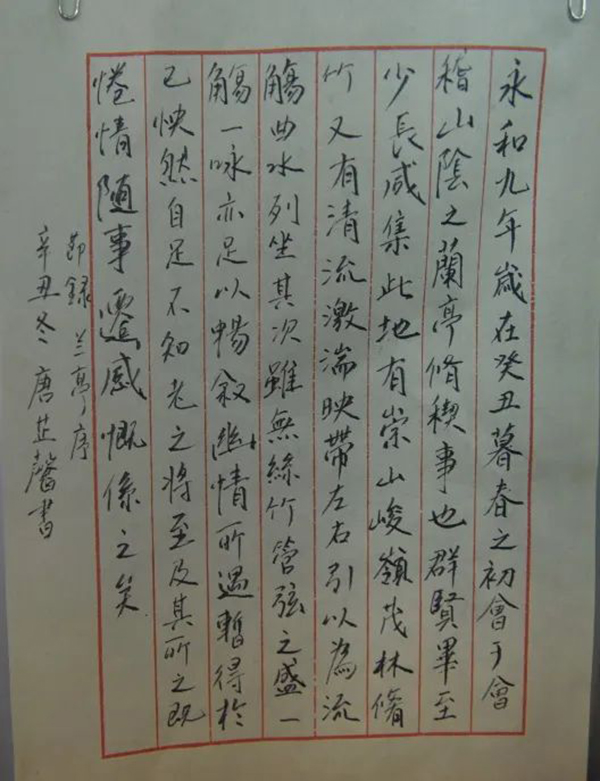 永和九年歲在癸丑暮春之初會于會
稽山陰之蘭亭脩稧事也群賢畢至
少長咸集此地有崇山峻嶺茂林脩
竹又有清流激湍映帶左右引以為流
觴曲水列坐其次雖無絲竹管弦之盛一
觴一咏亦足以暢敘幽情所遇暫得於
己怏然自足不知老之将至及其所之既
惓情隨事遷感慨係之矣
節録兰亭序
辛丑冬唐芷馨書